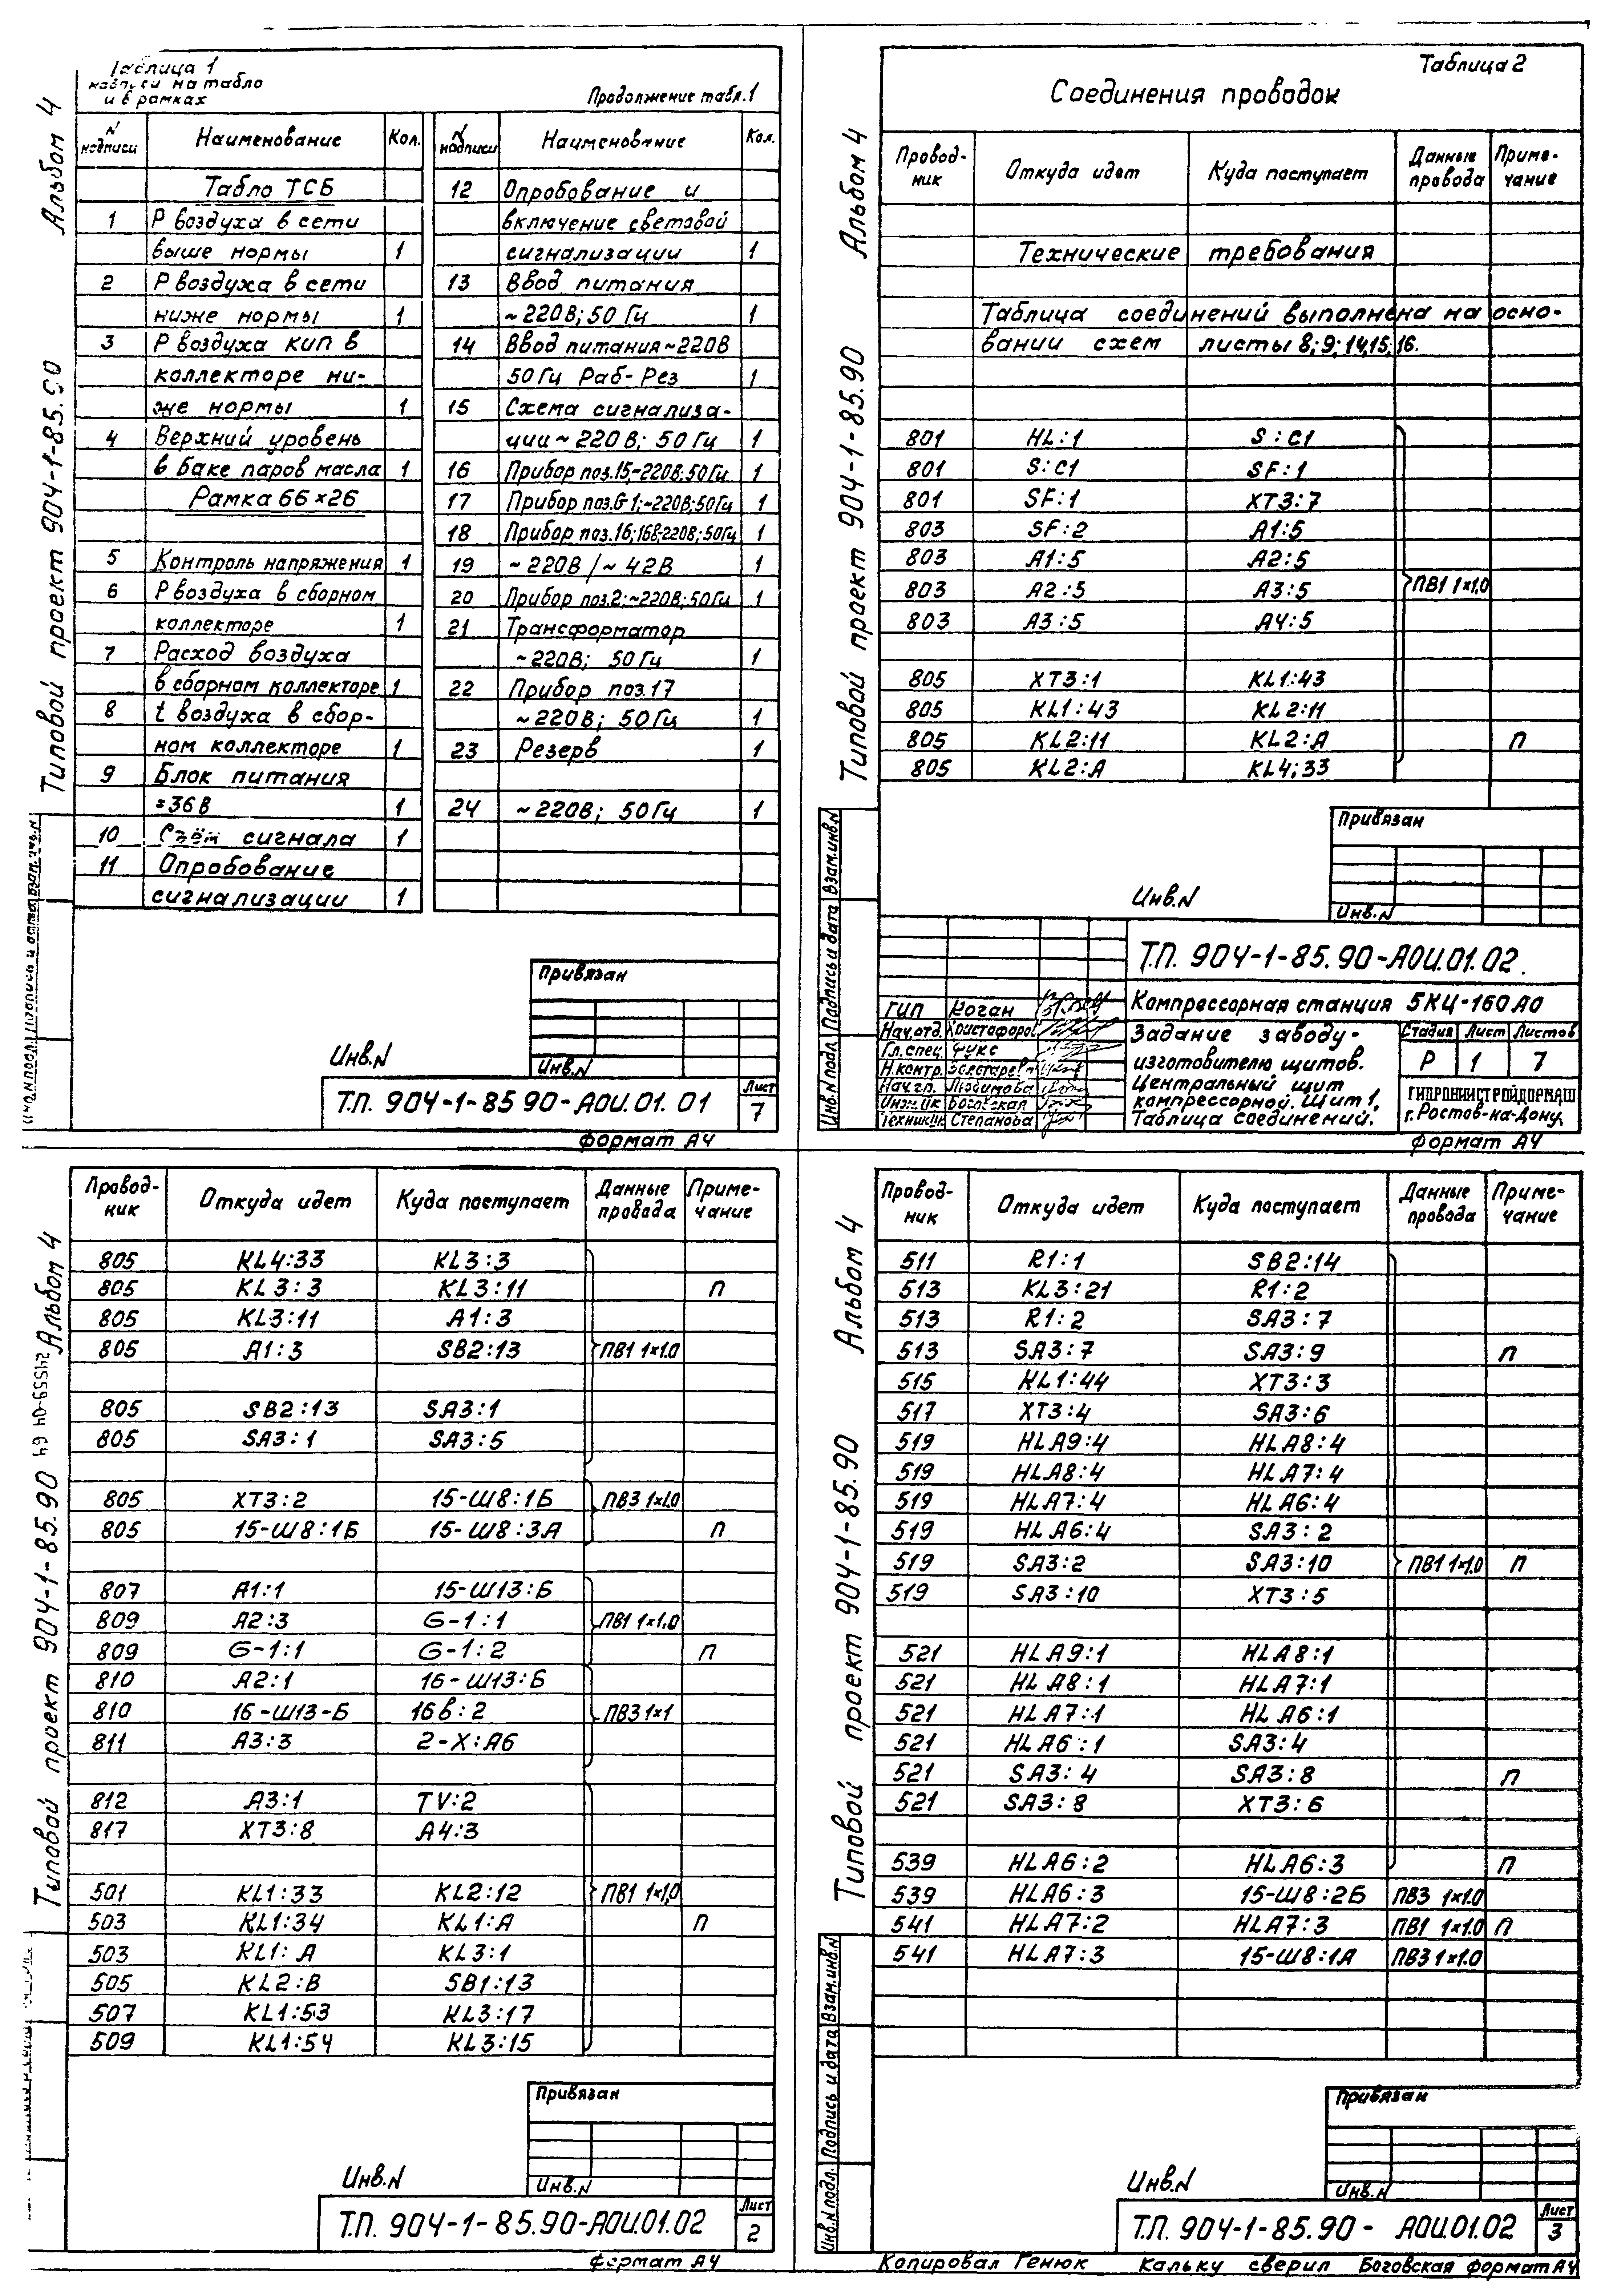 Таблица 1
надписи на табло
и в рамках
Продолжение табл.1
Альбом 4
Типовой проект 904-1-85.90
N надписи | Наименование | Кол.
Табло ТСБ
1 | Р воздуха в сети
выше нормы | 1
2 | Р воздуха в сети
ниже нормы | 1
3 | Р воздуха КИП в
коллекторе ни-
же нормы | 1
4 | Верхний уровень
в баке паров масла | 1
Рамка 66×26
5 | Контроль напряжения | 1
6 | Р воздуха в сборном
коллекторе | 1
7 | Расход воздуха
в сборном коллекторе | 1
8 | t воздуха в сбор-
ном коллекторе | 1
9 | Блок питания
=36В | 1
10 | Съём сигнала | 1
11 | Опробование
сигнализации | 1
N надписи | Наименование | Кол.
12 | Опробование и
включение световой
сигнализации | 1
13 | Ввод питания
~220В; 50 Гц | 1
14 | Ввод питания ~220В
50 Гц Раб-Рез | 1
15 | Схема сигнализа-
ции ~220В; 50 Гц | 1
16 | Прибор поз.15;~220В;50Гц | 1
17 | Прибор поз.G-1;~220В;50Гц | 1
18 | Прибор поз.16;16в~220В;50Гц | 1
19 | ~220В/~42В | 1
20 | Прибор поз.2;~220В;50Гц | 1
21 | Трансформатор
~220В; 50Гц | 1
22 | Прибор поз.17
~220В; 50Гц | 1
23 | Резерв | 1
24 | ~220В; 50Гц | 1
Привязан
Инв.N
Инв.N
Т.П. 904-1-85 90-АОИ.01.01
Лист
7
формат А4
Таблица 2
Соединения проводок
Альбом 4
Типовой проект 904-1-85.90
Провод-ник | Откуда идет | Куда поступает | Данные провода | Приме-чание
Технические требования
Таблица соединений выполнена на осно-
вании схем листы 8; 9; 14,15; 16.
801 | HL:1 | S:C1
801 | S:C1 | SF:1
801 | SF:1 | XT3:7
803 | SF:2 | A1:5
803 | A1:5 | A2:5
803 | A2:5 | A3:5 | ПВ1 1×1,0
803 | A3:5 | A4:5
805 | XT3:1 | KL1:43
805 | KL1:43 | KL2:11
805 | KL2:11 | KL2:A | П
805 | KL2:A | KL4:33
Привязан
Инв.N
Инв.N
Инв.N подл. Подпись и дата Взам.инв.N
Т.П. 904-1-85.90-АОИ.01.02.
Компрессорная станция 5КЦ-160А0
ГИП Коган
Нач.отд. Христофоров
Гл.спец. Фукс
Н.контр.
Нач.гп. Любимова
Инж.IIк Боговская
Техник IIк Степанова
Задание заводу-
изготовителю щитов.
Центральный щит
компрессорной. Щит 1.
Таблица соединений.
Стадия | Лист | Листов
Р | 1 | 7
ГИПРОНИИСТРОЙДОРМАШ
г.Ростов-на-Дону
формат А4
Альбом 4
24559-04 64
Типовой проект 904-1-85.90
Провод-ник | Откуда идет | Куда поступает | Данные провода | Приме-чание
805 | KL4:33 | KL3:3
805 | KL3:3 | KL3:11 | П
805 | KL3:11 | A1:3
805 | A1:3 | SB2:13 | ПВ1 1×1.0
805 | SB2:13 | SA3:1
805 | SA3:1 | SA3:5
805 | XT3:2 | 15-Ш8:1Б | ПВ3 1×1.0
805 | 15-Ш8:1Б | 15-Ш8:3А | П
807 | A1:1 | 15-Ш13:Б
809 | A2:3 | G-1:1 | ПВ1 1×1.0
809 | G-1:1 | G-1:2 | П
810 | A2:1 | 16-Ш13:Б
810 | 16-Ш13-Б | 16в:2 | ПВ3 1×1
811 | A3:3 | 2-X:A6
812 | A3:1 | TV:2
817 | XT3:8 | A4:3
501 | KL1:33 | KL2:12 | ПВ1 1×1,0
503 | KL1:34 | KL1:A | П
503 | KL1:A | KL3:1
505 | KL2:B | SB1:13
507 | KL1:53 | KL3:17
509 | KL1:54 | KL3:15
Привязан
Инв.N
Инв.N
Т.П. 904-1-85.90-АОИ.01.02
Лист
2
формат А4
Альбом 4
Типовой проект 904-1-85.90
Провод-ник | Откуда идет | Куда поступает | Данные провода | Приме-чание
511 | R1:1 | SB2:14
513 | KL3:21 | R1:2
513 | R1:2 | SA3:7
513 | SA3:7 | SA3:9 | П
515 | KL1:44 | XT3:3
517 | XT3:4 | SA3:6
519 | HLA9:4 | HLA8:4
519 | HLA8:4 | HLA7:4
519 | HLA7:4 | HLA6:4
519 | HLA6:4 | SA3:2
519 | SA3:2 | SA3:10 | ПВ1 1×1.0 | П
519 | SA3:10 | XT3:5
521 | HLA9:1 | HLA8:1
521 | HLA8:1 | HLA7:1
521 | HLA7:1 | HLA6:1
521 | HLA6:1 | SA3:4
521 | SA3:4 | SA3:8 | П
521 | SA3:8 | XT3:6
539 | HLA6:2 | HLA6:3 | П
539 | HLA6:3 | 15-Ш8:2Б | ПВ3 1×1.0
541 | HLA7:2 | HLA7:3 | ПВ1 1×1.0 | П
541 | HLA7:3 | 15-Ш8:1А | ПВ3 1×1.0
Привязан
Инв.N
Инв.N
Инв.N подл. Подпись и дата Взам.инв.N
Т.П. 904-1-85.90- АОИ.01.02
Лист
3
Копировал Генюк Кальку сверил Боговская формат А4